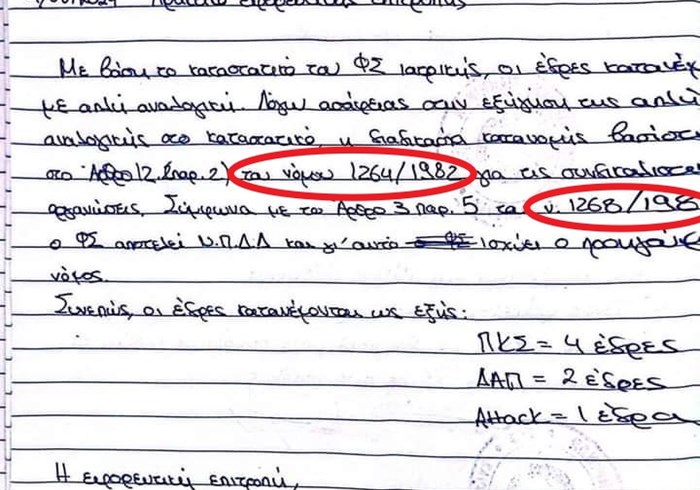 Πρακτικό εφορευτικής επιτροπής
Με βάση το καταστατικό του ΦΣ Ιατρικής, οι έδρες κατανέμ
με απλή αναλογική. Λόγω ασάφειας στην εξήγηση της απλή
αναλογικής στο καταστατικό, η διαδικασία κατανομής βασίστ
στο Άρθρο 12 (παρ. 2) του νόμου 1264/1982 για τις συνδικαλιστι
οργανώσεις. Σύμφωνα με το Άρθρο 3 παρ. 5 του ν. 1268/198
ο ΦΣ αποτελεί Ν.Π.Δ.Δ και γι' αυτό ισχύει ο
νόμος.
Συνεπώς, οι έδρες κατανέμονται ως εξής:
ΠΚΣ = 4 έδρες
ΔΑΠ = 2 έδρες
Attack = 1 έδρα
Η εφορευτική επιτροπή,